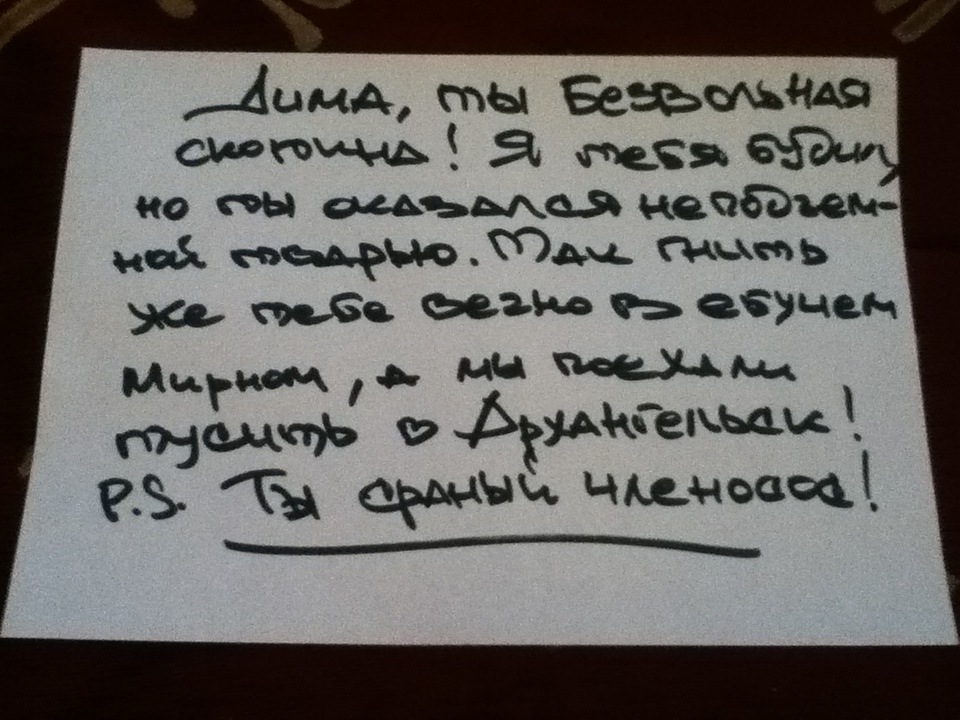 Дима, ты безвольная
скотина! Я тебя будил,
но ты оказался неподъем-
ной тварью. Так гнить
же тебе вечно в ебучем
Мирном, а мы поехали
тусить в Архангельск!
P.S. Ты сраный членосос!